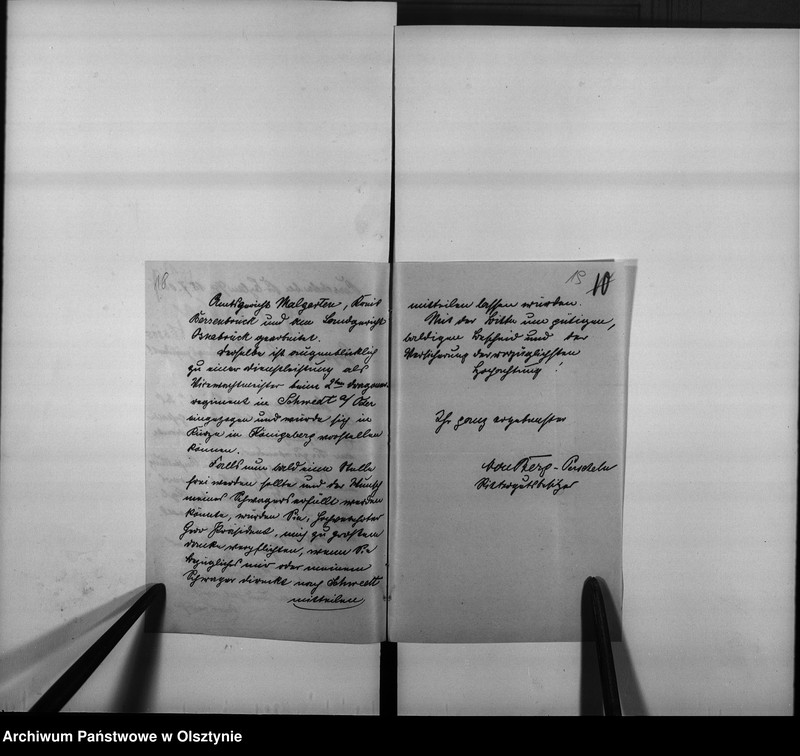 18
Amtsgericht Malgarten, Kreis
Bersenbrück und am Landgericht
Osnabrück gearbeitet.
Derselbe ist augenblicklich
zu einer Dienstleistung als
Vizewachtmeister beim 2ten Dragoner-
regiment in Schwedt a/Oder
eingezogen und würde sich in
Kürze in Königsberg vorstellen
können.
Falls nun bald eine Stelle
frei werden sollte und der Wunsch
meines Schwagers erfüllt werden
könnte, würden Sie, Hochverehrter
Herr Präsident, mich zu großem
Danke verpflichten, wenn Sie
bezüglichs mir oder meinem
Schwager direkt nach Schwedt
mitteilen
15
10
mitteilen lassen würden.
Mit der Bitte um gütigen,
baldigen Bescheid und der
Versicherung der vorzüglichsten
Hochachtung!
Ihr ganz ergebenster
Rittergutsbesitzer
Archiwum Państwowe w Olsztynie